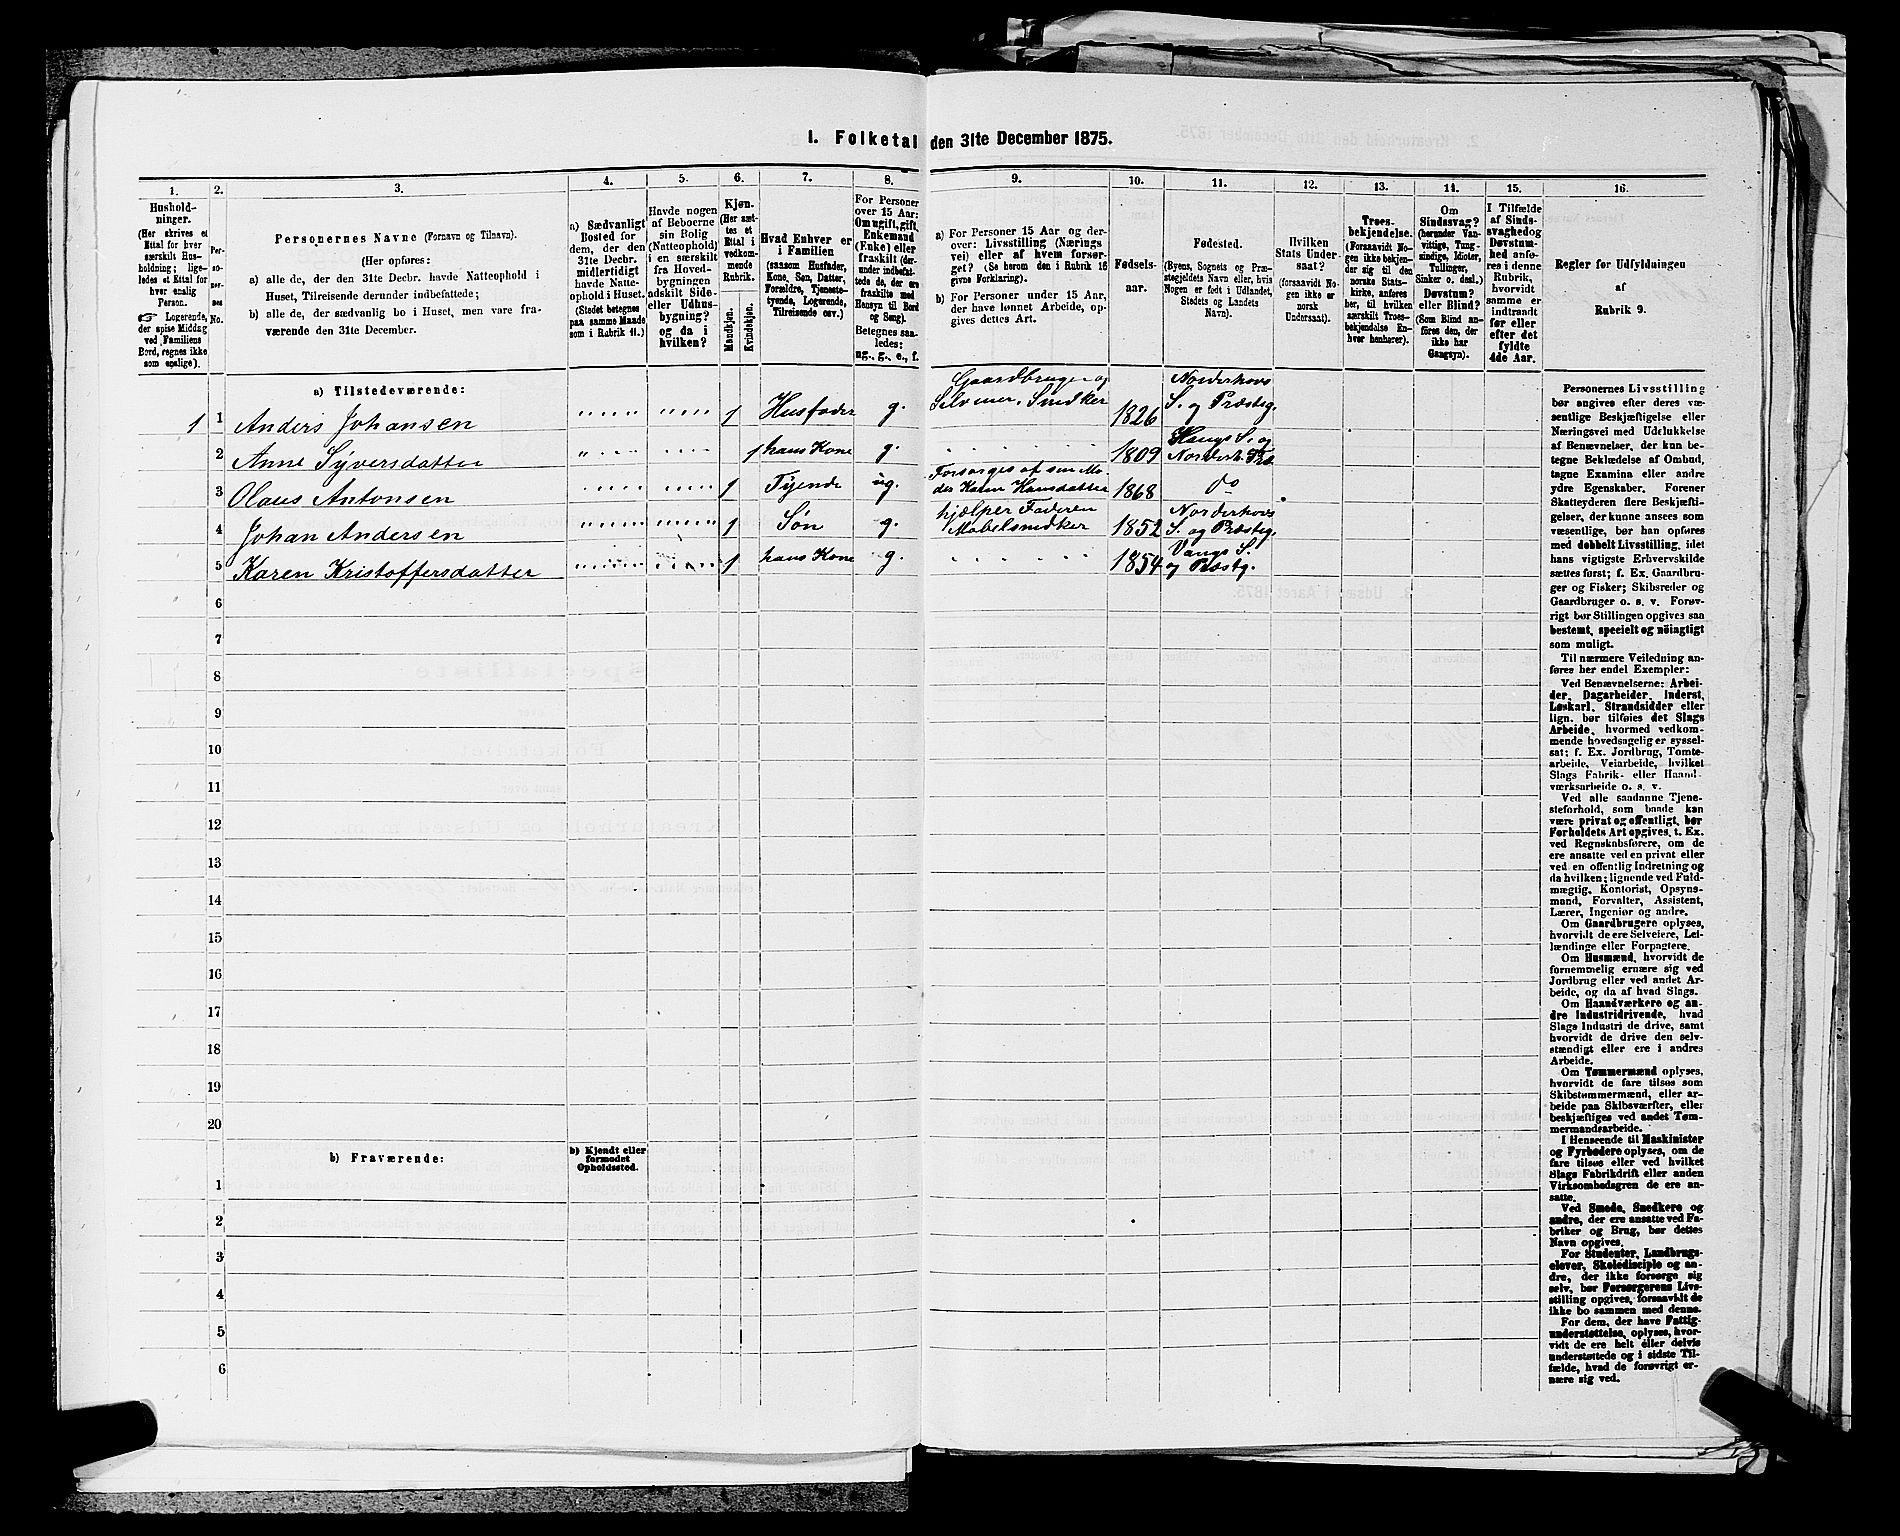 1. Folketal den 31te December 1875.
1. 2. 3. 4. 5. 6. 7. 8. 9. 10. 11. 12. 13. 14. 15. 16.
Hushold-
ninger.
(Her skrives et
Ettal for hver
særskilt Hus-
holdning; lige-
ledes et Ettal
for hver enslig
Person.
☞ Logerende,
der spise Middag
ved Familiens
Bord, regnes ikke
som enslige).
Per-
so-
ner-
nes
No.
Personernes Navne (Fornavn og Tilnavn).
(Her opføres:
a) alle de, der den 31te Decbr. havde Natteophold i
Huset, Tilreisende derunder indbefattede;
b) alle de, der sædvanlig bo i Huset, men vare fra-
værende den 31te December.
a) Sædvanligt
Bosted for
dem, der den
31te Decbr.
midlertidigt
havde Natte-
ophold i Huset.
(Stedet betegnes
paa samme Maade
som i Rubrik 11.)
Havde nogen
af Beboerne
sin Bolig
(Natteophold)
i en særskilt
fra Hoved-
bygningen
adskilt Side-
eller Udhus-
bygning?
og da i
hvilken?
Kjøn.
(Her sæt-
tes et
Ettal i
vedkom-
mende
Rubrik.
Mandkjøn.
Kvindekjøn.
Hvad Enhver er
i Familien
(saasom Husfader,
Kone, Søn, Datter,
Forældre, Tjeneste-
tyende, Logerende,
Tilreisende osv.)
For Personer
over 15 Aar:
Om ugift, gift,
Enkemand
(Enke) eller
fraskilt (der-
under indbefat-
tede de, der ere
fraskilte med
Hensyn til Bord
og Seng).
Betegnes saa-
ledes:
ug., g., e., f.
a) For Personer 15 Aar og der-
over: Livsstilling (Nærings
vei) eller af hvem forsør-
get? (Se herom den i Rubrik 16
givne Forklaring).
b) For Personer under 15 Aar,
der have lønnet Arbeide, op-
gives dettes Art.
Fødsels-
aar.
Fødested.
(Byens, Sognets og Præ-
stegjeldets Navn eller, hvis
Nogen er født i Udlandet,
Stedets og Landets
Navn).
Hvilken
Stats Under-
saat?
(forsaavidt No-
gen ikke er
norsk
Undersaat).
Troes-
bekjendelse.
(Forsaavidt No-
gen ikke bekjen-
der sig til den
norske Stats-
kirke, anføres
her, til hvilken
særskilt Troes-
bekjendelse En-
hver henhører).
Om
Sindssvag?
(herunder Van-
vittige, Tung-
sindige, Idioter,
Tullinger,
Sinker o. desl.)
Døvstum?
eller Blind?
(Som Blind an-
føres den, der
ikke har
Gangsyn).
I Tilfælde
af Sinds-
svaghed og
Døvstum-
hed anfø-
res i denne
Rubrik,
hvorvidt
samme er
indtraadt
før eller
efter det
fyldte
4de Aar.
Regler for Udfyldningen
af
Rubrik 9.
a) Tilstedeværende:
1 1 Anders Johansen 1 Husfader g. Gaardbruger og Selveier. Snedker 1826 Norderhovs S. og Præsteg.
2 Anne Syversdatter 1 hans Kone g. 1809 Haugs S. og Norderh. Præ.
3 Olaus Antonsen 1 Tyende ug. Forsørges af sin Moder Karen Hansdatter 1868 do
4 Johan Andersen 1 Søn g. hjælper Faderen Møbelsnedker 1852 Norderhovs S. og Præsteg.
5 Karen Kristoffersdatter 1 hans Kone g. 1854 Vangs S. og Præstg.
6
7
8
9
10
11
12
13
14
15
16
17
18
19
20
b) Fraværende:
b) Kjendt eller
formodet
Opholdssted.
1
2
3
4
5
6
Personernes Livsstilling
bør angives efter deres væ-
sentlige Beskjæftigelse eller
Næringsvei med Udelukkelse
af Benævnelser, der kun be-
tegne Beklædelse af Ombud,
tagne Examina eller andre
ydre Egenskaber. Forener
Skatteyderen flere Beskjæfti-
gelser, der kunne ansees som
væsentlige, bør han opføres
med dobbelt Livsstilling, idet
hans vigtigste Erhvervskilde
sættes først; f. Ex. Gaardbru-
ger og Fisker; Skibsreder og
Gaardbruger o. s. v. Forøv-
rigt bør Stillingen opgives saa
bestemt, specielt og nöiagtigt
som muligt.
Til nærmere Veiledning an-
føres her endel Exempler:
Ved Benævnelserne: Arbei-
der, Dagarbeider, Inderst,
Løskarl, Strandsidder eller
lign. bør tilføies det Slags
Arbeide, hvormed vedkom-
mende hovedsagelig er syssel-
sat; f. Ex. Jordbrug, Tomte-
arbeide, Veiarbeide, hvilket
Slags Fabrik- eller Haand-
værksarbeide o. s. v.
Ved alle saadanne Tjene-
steforhold, som baade kan
være privat og offentligt, bør
Forholdets Art opgives, t. Ex.
ved Regnskabsførere, om de
ere ansatte ved en privat eller
ved en offentlig Indretning og
da hvilken; lignende ved Fuld-
mægtig, Kontorist, Opsyns-
mand, Forvalter, Assistent,
Lærer, Ingeniør og andre.
Om Gaardbrugere oplyses,
hvorvidt de ere Selveiere, Lei-
lændinge eller Forpagtere.
Om Husmænd, hvorvidt de
fornemmelig ernære sig ved
Jordbrug eller ved andet Ar-
beide, og da af hvad Slags.
Om Haandværkere og an-
dre Industridrivende, hvad
Slags Industri de drive, samt
hvorvidt de drive den selv-
stændigt eller ere i andres
Arbeide.
Om Tømmermænd oplyses,
hvorvidt de fare tilsøs som
Skibstømmermænd, eller ar-
beide paa Skibsværfter, eller
beskjæftiges ved andet Tøm-
mermandsarbeide.
I Henseende til Maskinister
og Fyrbødere oplyses, om de
fare tilsøs eller ved hvilket
Slags Fabrikdrift eller anden
Virksomhedsgren de ere an-
satte.
Ved Smede, Snedkere og
andre, der ere ansatte ved Fa-
briker og Brug, bør dettes
Navn opgives.
For Studenter, Landbrugs-
elever, Skoledisciple og an-
dre, der ikke forsørge sig
selv, bør Forsørgerens Livs-
stilling opgives, forsaavidt de
ikke bo sammen med denne.
For dem, der have Fattig-
understøttelse, oplyses, hvor-
vidt de ere helt eller delvis
understøttede og i sidste Til-
fælde, hvad de forøvrigt er-
nære sig ved.